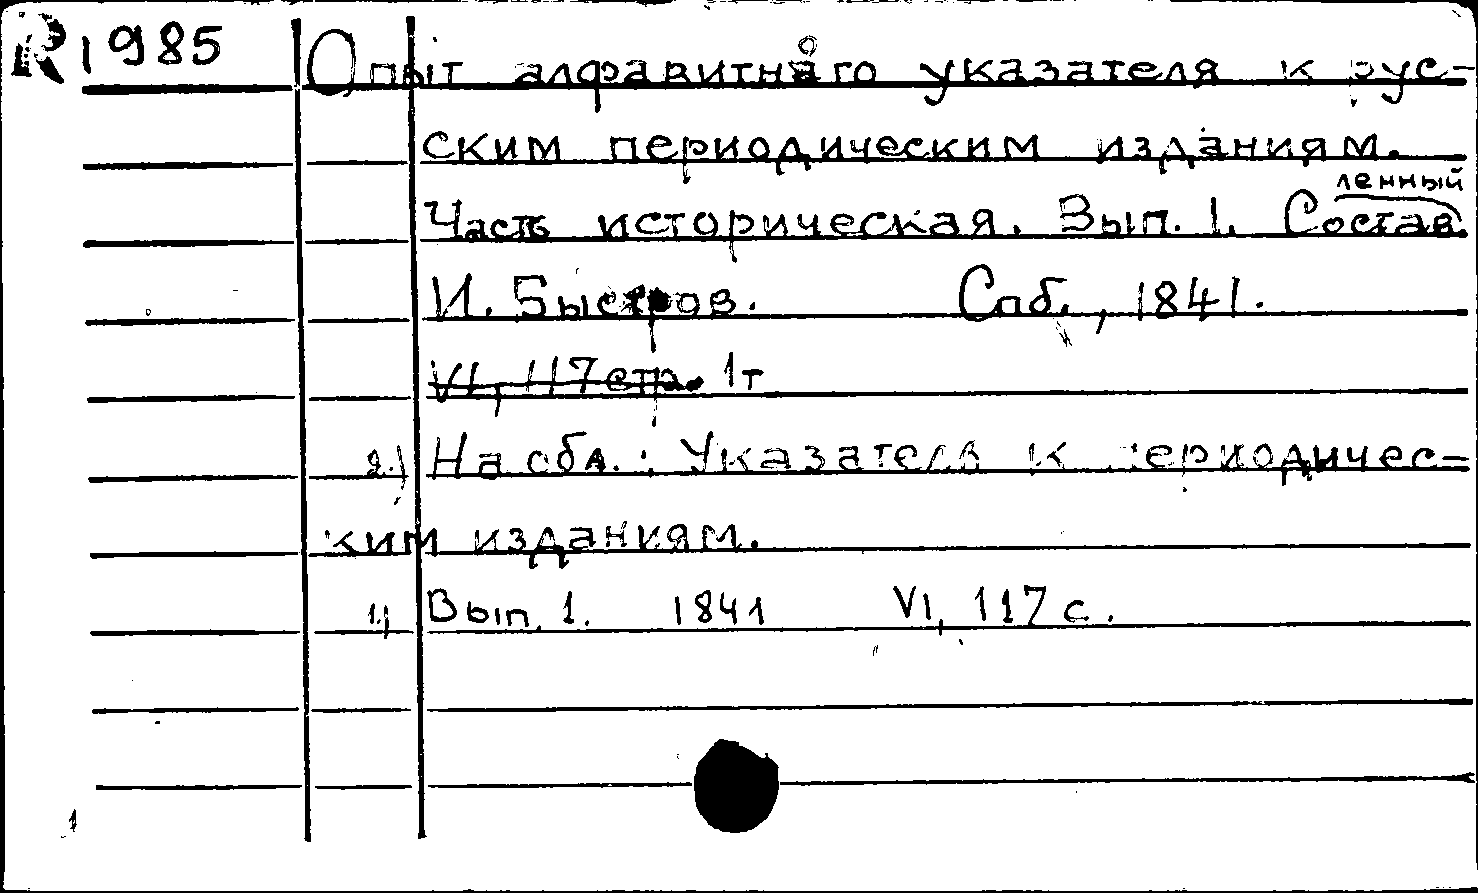 R 1985
Опыт алфавитнаго указателя к рус-
ским периодическим изданиям.
Часть историческая. Вып. 1. Составленный
И. Быстров. Спб., 1841.
VI, 117 стр. 1т
2.) На обл.: Указатель к периодичес-
ким изданиям.
1.) Вып. 1. 1841 VI, 117 с.
1